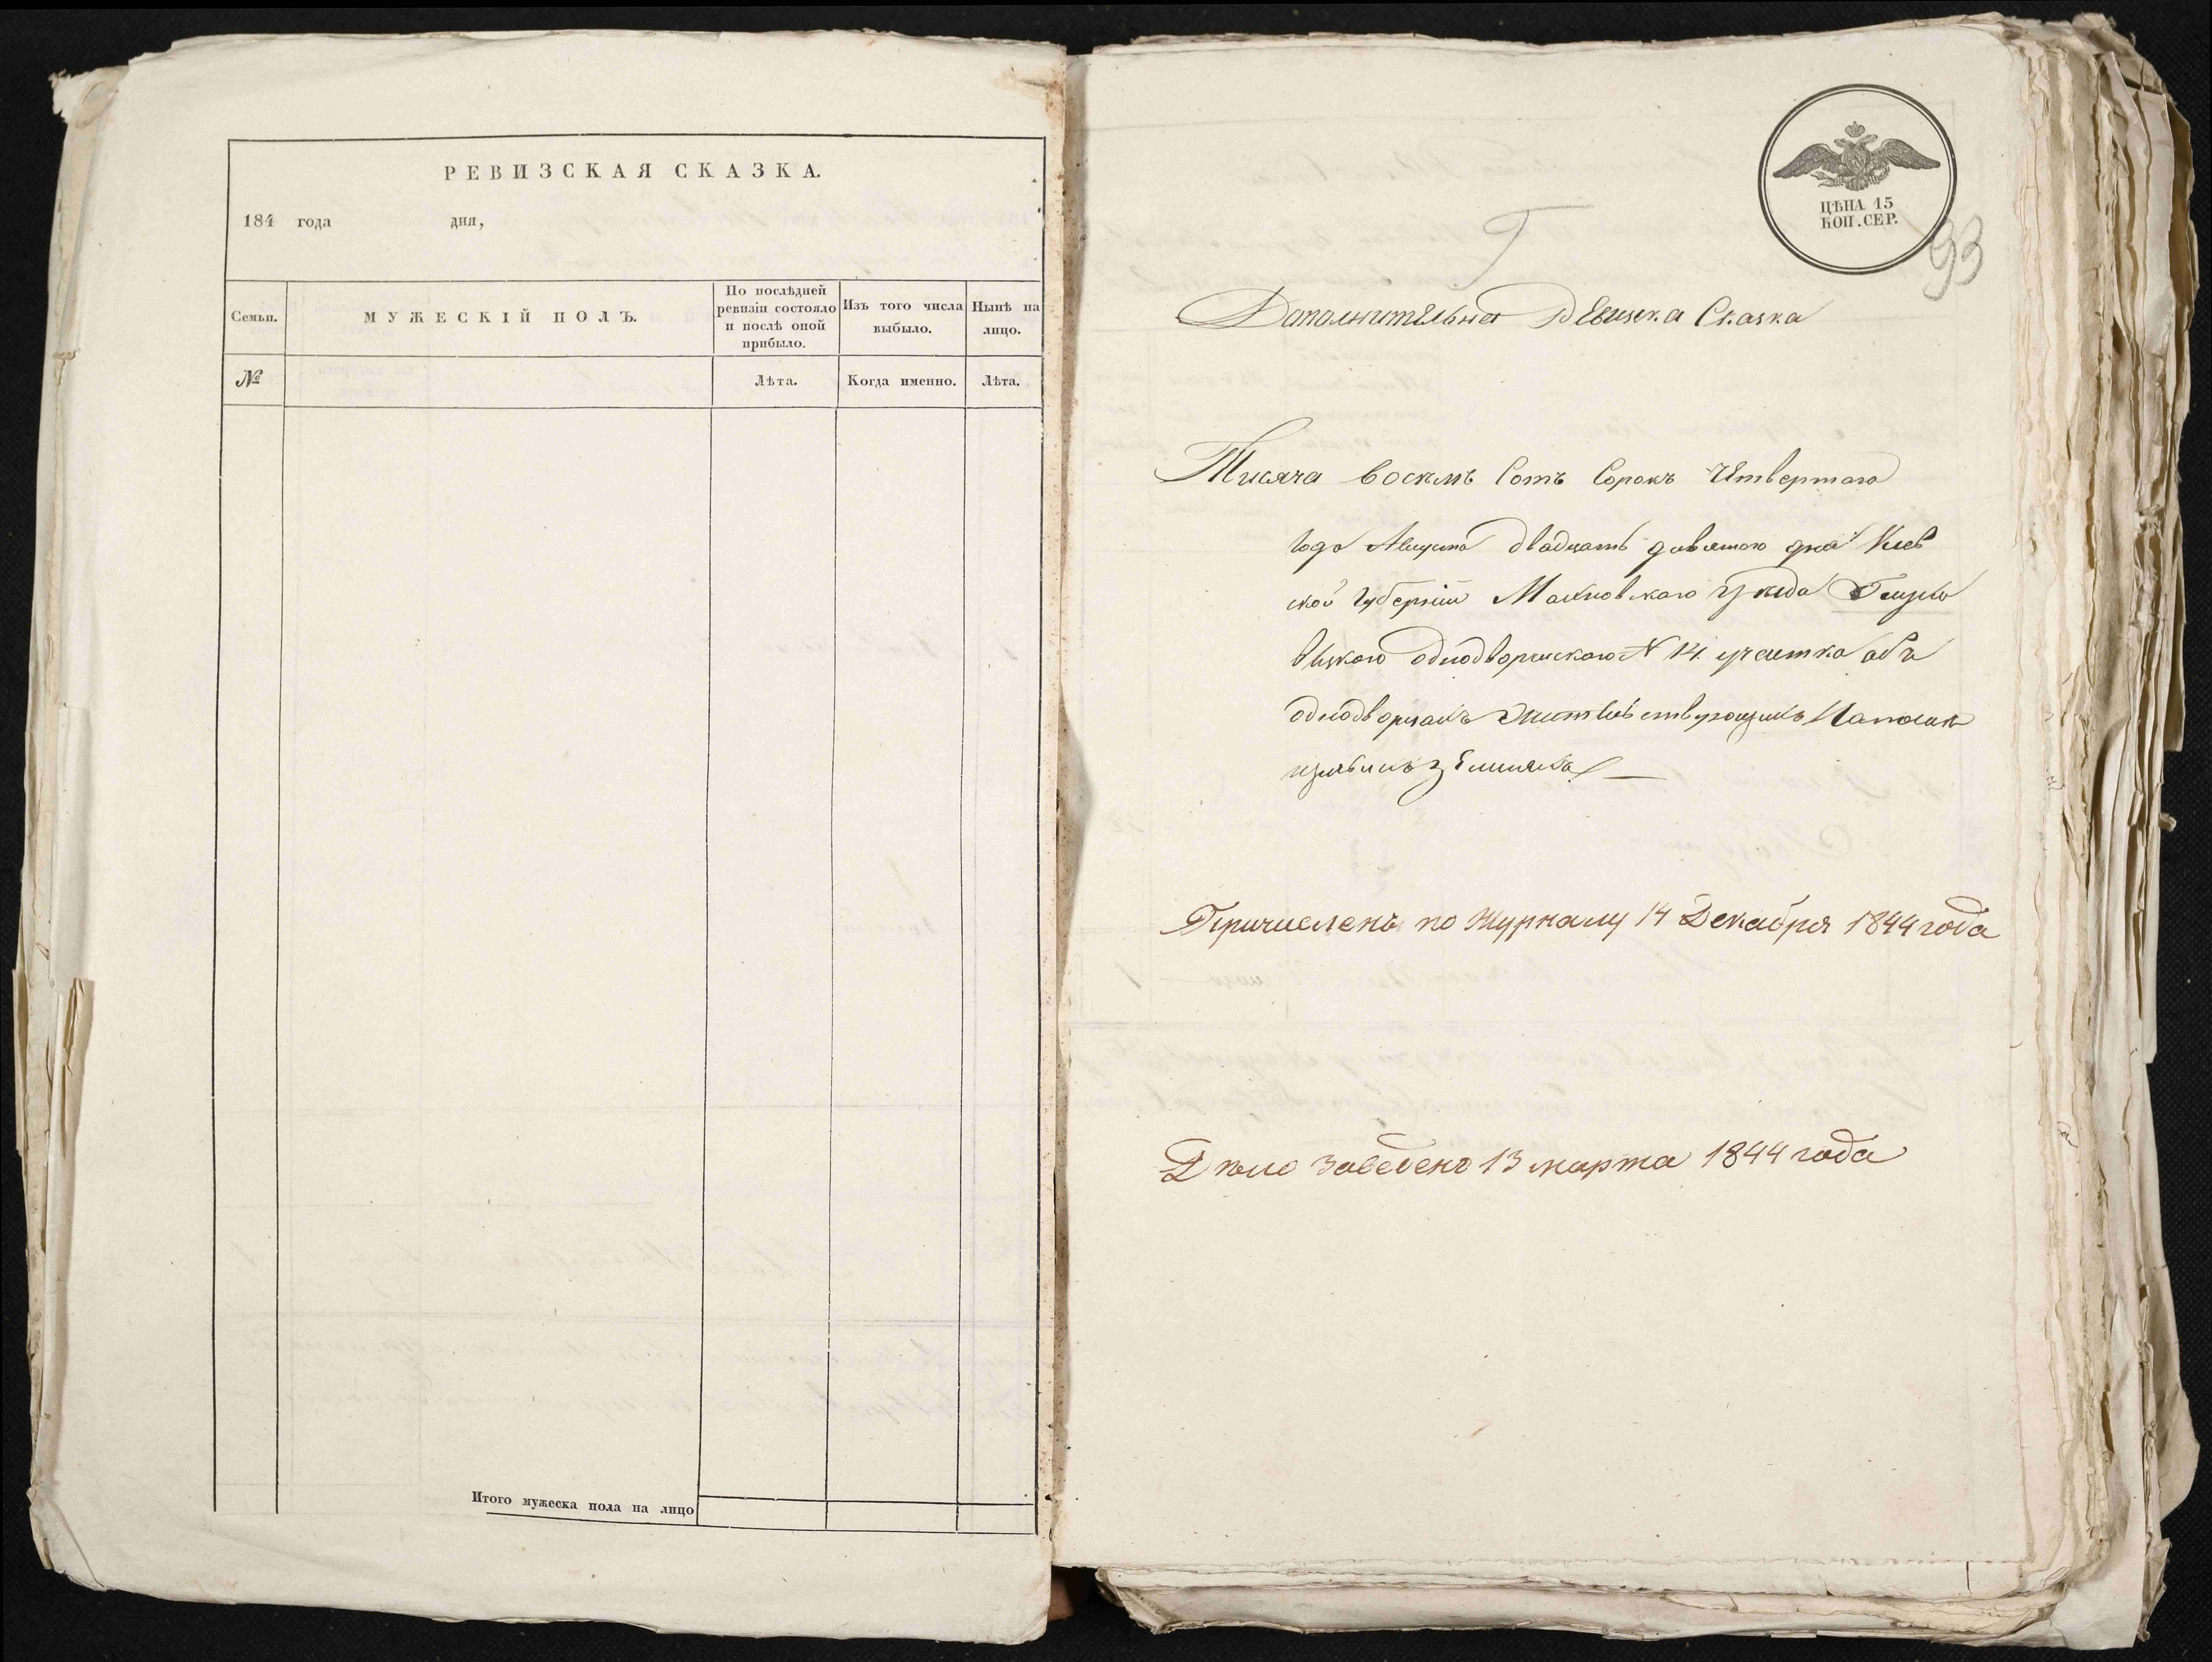 РЕВИЗСКАЯ СКАЗКА.
184 года дня,
Семьи.
МУЖЕСКІЙ ПОЛЪ.
По послѣдней
ревизіи состояло
и послѣ оной
прибыло.
Изъ того числа
выбыло.
Нынѣ на
лицо.
№
Лѣта.
Когда именно.
Лѣта.
Итого мужеска пола на лицо
ЦѢНА 15
КОП.СЕР.
93
Дополнительна Ревизка Сказка
Тисяча восемъ Сотъ Сорокъ Четвертого
года Августа двадцать девятого дня Киев
ской губерніи Махновского уезда
однодворческого N 14 участка объ
однодворцахъ
земляхъ
Причисленъ по Журналу 14 Декабря 1844 года
Дѣло заведено 13 марта 1844 года